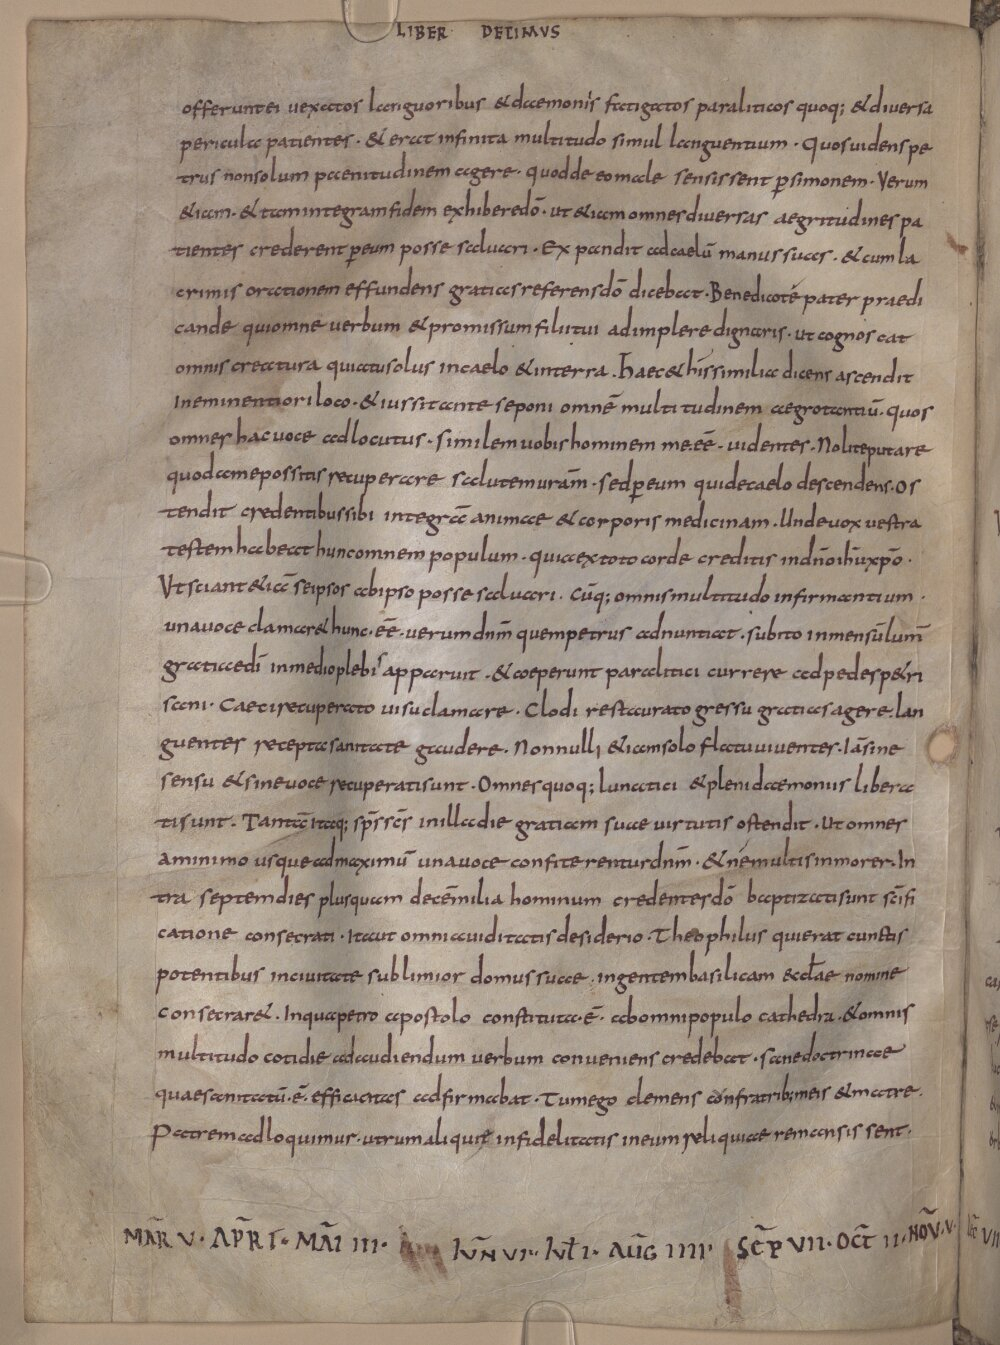 LIBER DECIMVS
offeruntei uexatos languoribus &daemoniis fatigatos paraliticos quoq; &diversa
pericula patientes · &erat infinita multitudo simul languentium · Quosuidenspe
trus nonsolum paenitudinem agere · quoddeeomale sensissent ꝑsimonem · Verum
&iam · &tamintegramfidem exhiberedō · ut &iam omnesdiversas aegritudines pa
tientes crederent ꝑeum posse saluari · Expandit adcaelū manussuas · &cumla
crimis orationem effundens gratiasreferensdō dicebat · Benedicote pater praedi
cande quiomne uerbum &promissumfiliitui adimplere dignaris · ut cognoscat
omnis creatura quiatusolus incaelo &interra . haec&hissimilia dicens ascendit
Ineminentiori loco · &iussitante seponi omnē multitudinem aegrotantiū · quos
omnes hac uoce adlocutus · similemuobishominem me·eē· uidentes · Noliteputare
quodamepossitis recuperare salutemuram̄ · sedꝑeum quidecaelo descendens · Os
tendit credentibussibi integrāe animae &corporis medicinam · Undeuox uestra
testem habeat huncomnem populum · quiaextoto corde creditis indn̄oihūxpō ·
Vtsciant&iā seipsos abipso posse saluari · Cūq; omnismultitudo infirmantium ·
unauoce clamar&hunc·eē·uerum dnm̄ quempetrus adnuntiat · subito inmensūlum̄
gratiaedī inmedioplebis apparuit · &coeperunt paralitici currere adpedesp&ri
sani · Caecirecuperato uisuclamare · Clodi restaurato gressu gratiasagere · lan
guentes receptasanitate gaudere · Nonnulli &iamsolo flatuuiuentes · Iāsine
sensu &sineuoce recuperatisunt · Omnesquoq; lunatici &plenidaemoniis libera
tisunt · Tantāitaq; sp̄ssc̄s inilladie gratiam suae uirtutis ostendit · Ut omnes
aminimo usqueadmaximū unauoce confiterenturdnm̄ · &nēmultisinmorer · In
tra septemdies plusquam decēmilia hominum credentesdō baptizatisunt sc̄ifi
catione consecrati · Itaut omniauiditatisdesiderio · Theophilus quierat cunctis
potentibus inciuitate sublimior domussuae · ingentembasilicam eccl̄ae nomine
consecrar& . Inquapetro apostolo constituta·ē· abomnipopulo cathedra · &omnis
multitudo cotidie adaudiendum uerbum conueniens credebat · sanedoctrinae
quaesanitatū·ē· efficacitas adfirmabat · Tumego clemens confratrib;meis &matre ·
Patremadloquimur · utrumaliquit infidelitatis ineum reliquiae remansissent ·
MAR̄ V · APR̄ I · MAĪ III · IVN̄ VI · IVƚ I · AVḠ IIII · SEP̄ VII · OCT̄ II · NOV̄ · V ·